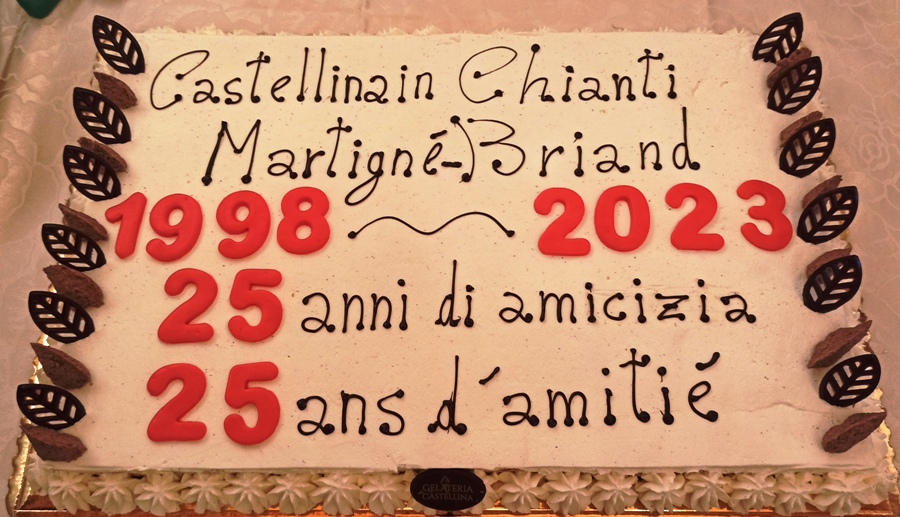 Castellinain Chianti
Martigné-Briand
1998 ~ 2023
25 anni di amicizia
25 ans d´amitié
GELATERIA
DI CASTELLINA